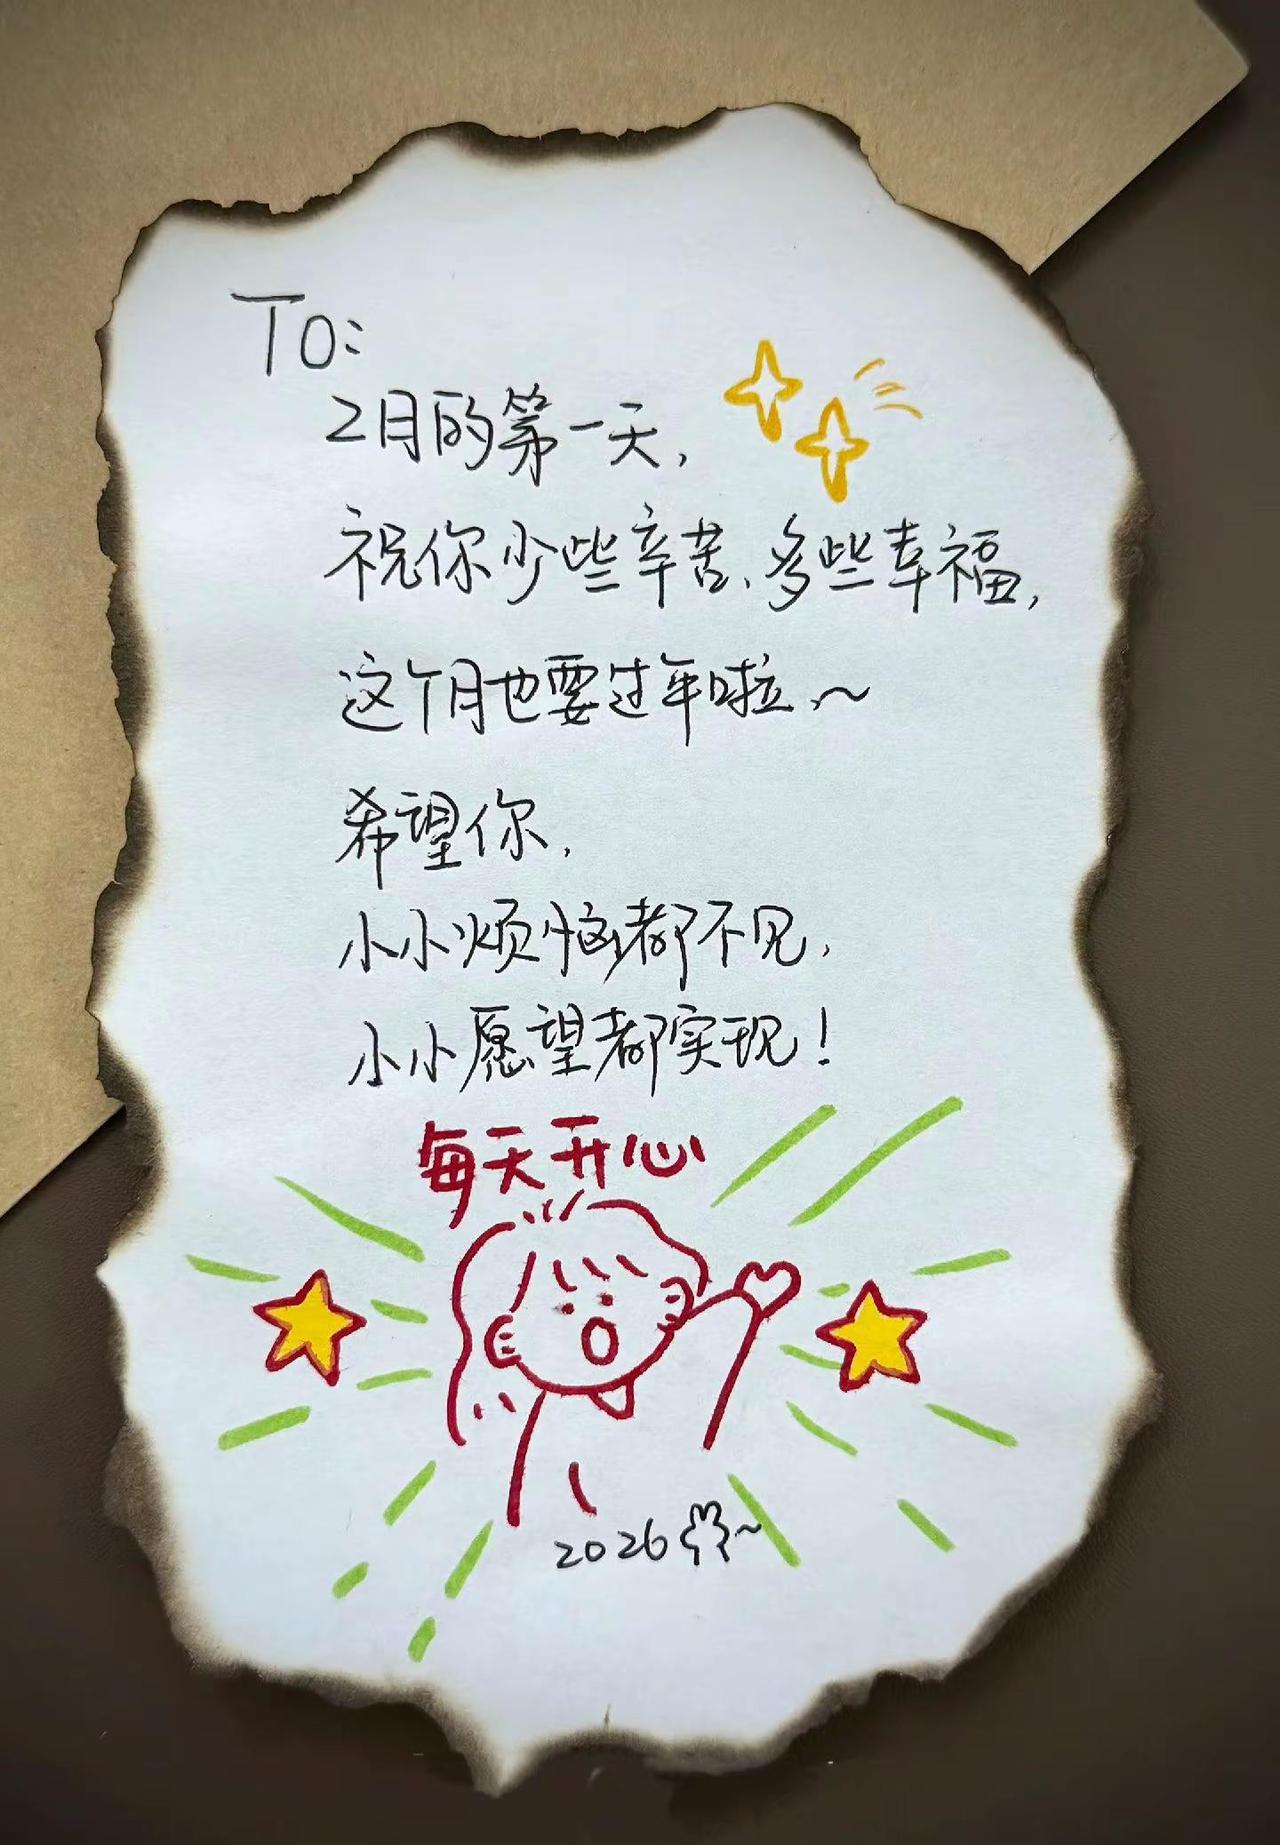 TO:
2月的第一天,
祝你少些辛苦、多些幸福,
这个月也要过年啦~
希望你,
小小烦恼都不见,
小小愿望都实现!
每天开心
2026~